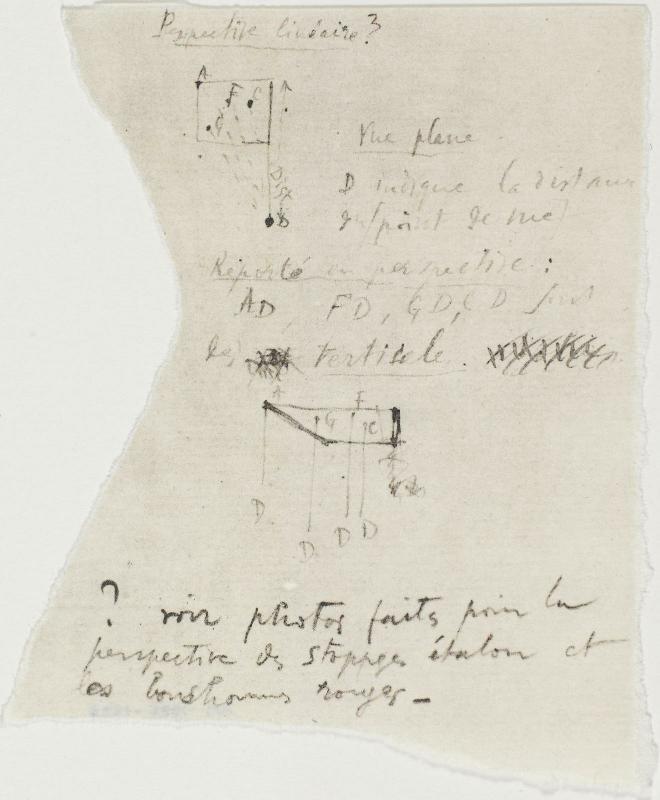 Perspective linéaire?
A
F C
G
Dist
D
Vue plane
D indique la distance
du (point de vue)
Reporté en perspective :
AD, FD, GD, CD sont
des verticale.
A
F
G C
D
D D D
? voir photos faites pour la
perspective des stoppages étalon et
les bonshommes rouges –